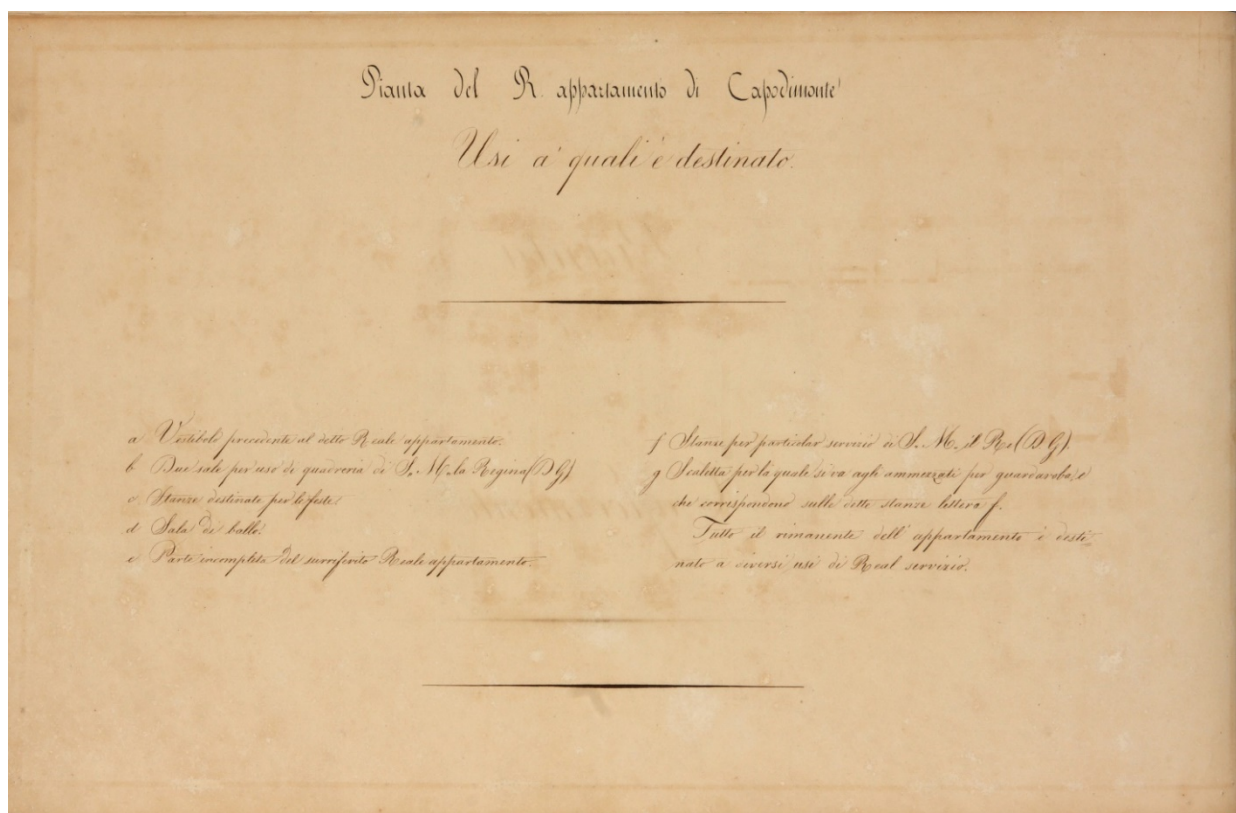 Pianta del R. appartamento di Capodimonte
Usi a' quali è destinato.
a Vestibolo precedente al detto Reale appartamento.
b Due sale per uso di quadreria di S. M. la Regina (D. G.)
c Stanze destinate per le feste.
d Sala di ballo.
e Parte incompleta del surriferito Reale appartamento.
f Stanze per particolar servizio di S. M. il Re (D. G.)
g Scaletta per la quale si va agli ammezzati per guardaroba, e
che corrispondono sulle dette stanze lettera f.
Tutto il rimanente dell' appartamento è desti-
nato a diversi usi di Real servizio.